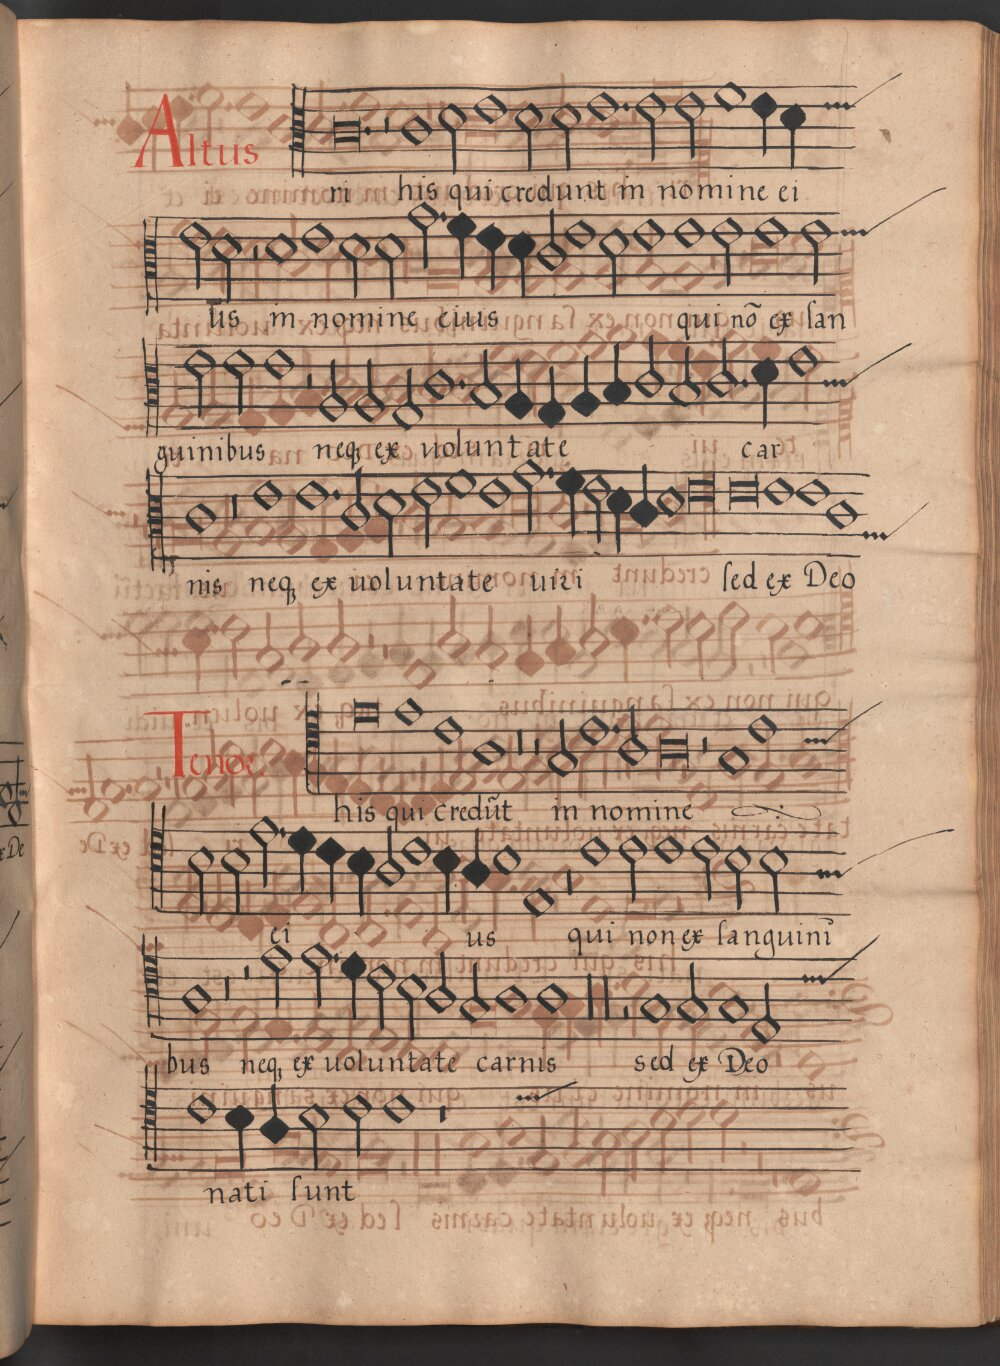 Altus
ri his qui credunt in nomine ei
us in nomine eius qui nõ ex san
guinibus neq; ex uoluntate car
nis neq; ex uoluntate uiri sed ex Deo
Tenor
his qui credũt in nomine
ei us qui non ex sanguini
bus neq; ex uoluntate carnis sed ex Deo
nati sunt